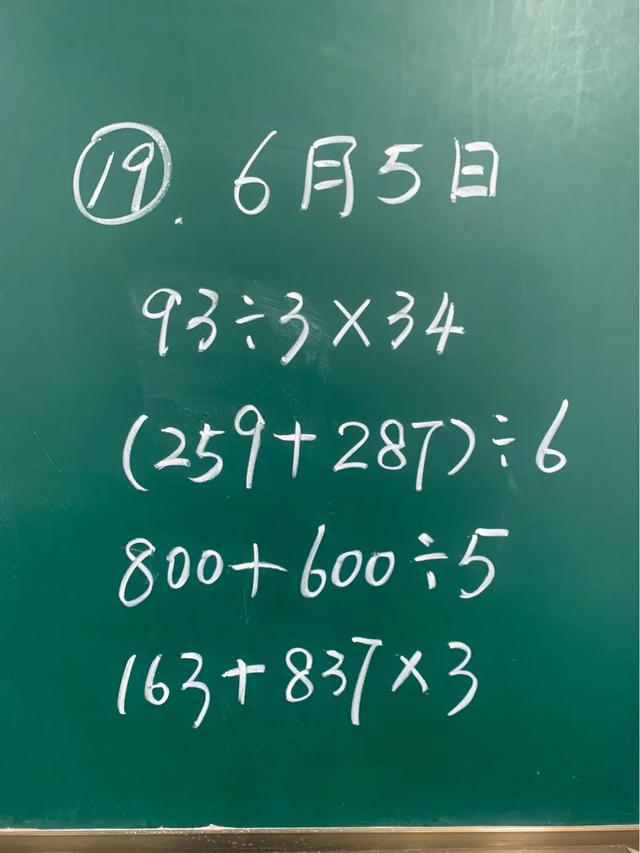 ⑲. 6月5日
93÷3×34
(259+287)÷6
800+600÷5
163+837×3